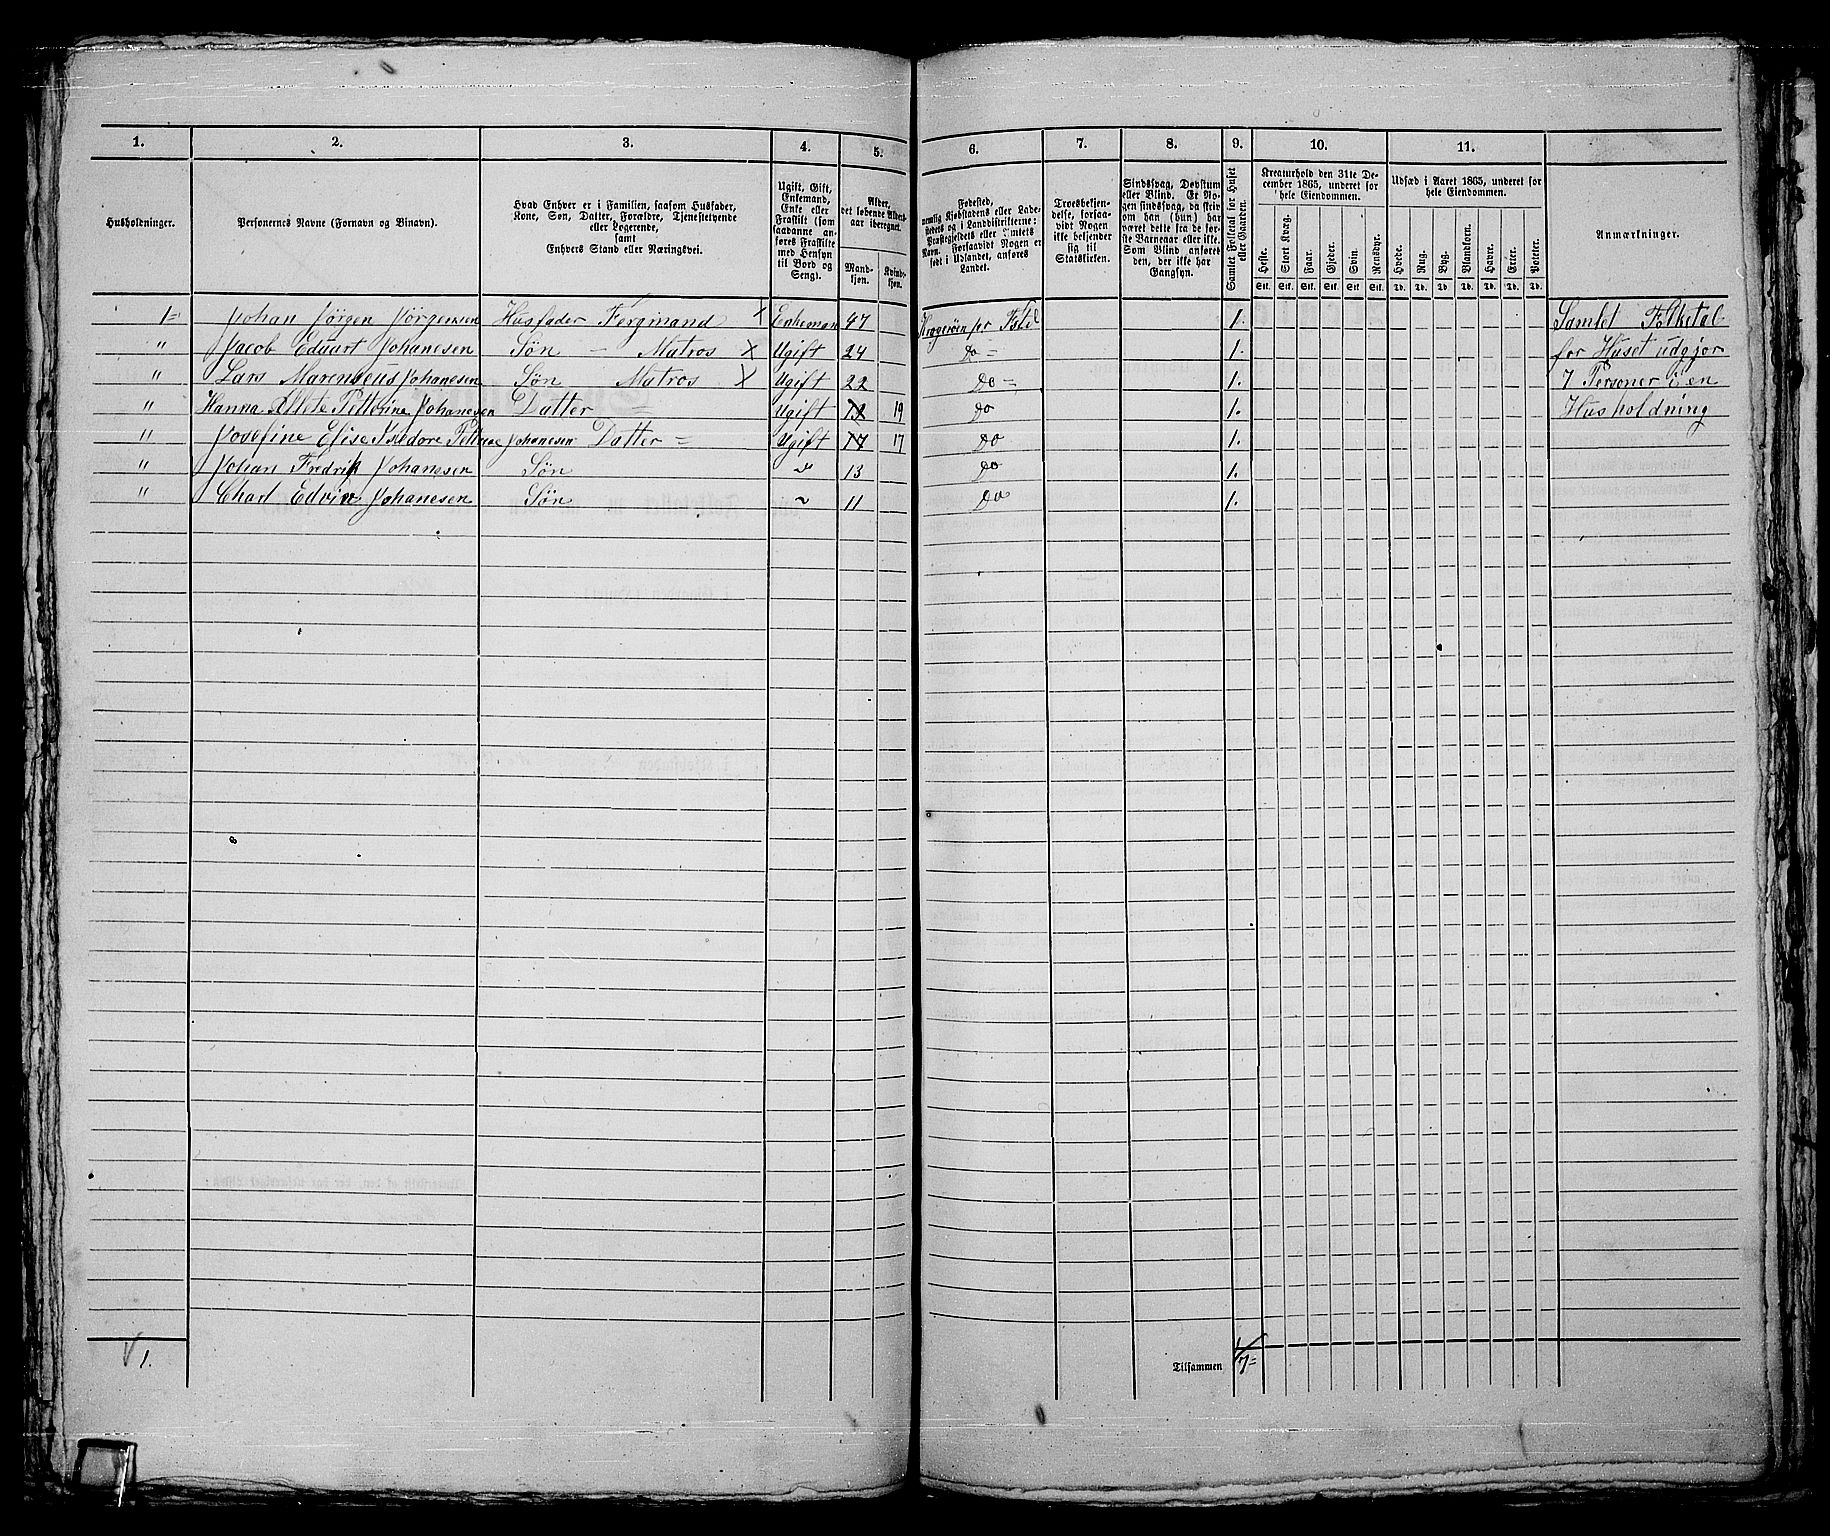 1. 2. 3. 4. 5. 6. 7. 8. 9. 10. 11.
Husholdninger.
Personernes Navne (Fornavn og Binavn).
Hvad Enhver er i Familien, saasom Husfader,
Kone, Søn, Datter, Forældre, Tjenestetyende
eller Logerende,
samt
Enhvers Stand eller Næringsvei.
Ugift, Gift,
Enkemand,
Enke eller
Fraskilt (som
saadanne an-
føres Fraskilte
med Hensyn
til Bord og
Seng).
Alder,
det løbende Alders-
aar iberegnet.
Mand-
kjøn.
Kvind-
kjøn.
Fødested,
nemlig Kjøbstadens eller Lade-
stedets og i Landdistrikterne:
Præstegjeldets eller Amtets
Navn. Forsaavidt Nogen er
født i Udlandet, anføres
Landet.
Troesbekjen-
delse, forsaa-
vidt Nogen
ikke bekjender
sig til
Statskirken.
Sindssvag, Døvstum
eller Blind. Er No-
gen sindssvag, da skriv
om han (hun) har
været dette fra de før-
ste Barneaar eller ikke.
Som Blind anføres
den, der ikke har
Gangsyn.
Samlet Folketal for Huset
eller Gaarden.
Kreaturhold den 31te De-
cember 1865, underet for
hele Eiendommen.
Heste. Stort Kvæg. Faar. Gjeder. Svin. Rensdyr.
Stk. Stk. Stk. Stk. Stk. Stk.
Udsæd i Aaret 1865, underet for
hele Eiendommen.
Hvede. Rug. Byg. Blandkorn. Havre. Erter. Poteter.
Td. Td. Td. Td. Td. Td. Td.
Anmærkninger.
1= Johan Jørgen Jørgensen Husfader Fergmand X Enkeman 47 1. Samlet Folketal
" Jacob Eduart Johanesen Søn – Matros X Ugift 24 Do = 1. for Huset udgjør
" Lars Marenseus Johanesen Søn – Matros X Ugift 22 Do = 1. 7 Personer i en
" Hanna Petterine Johanesen Datter = Ugift 19 Do 1. Husholdning
" Josefine Elise Johanesen Datter = Ugift 17 17 Do 1.
" Johan Fredrik Johanssen Søn " 13 Do 1.
" Charl Edvin Johanesen Søn ~ 11 Do 1.
1.
Tilsammen 7=